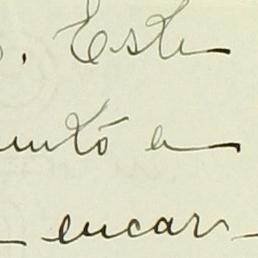 . Este
untó a
encar-